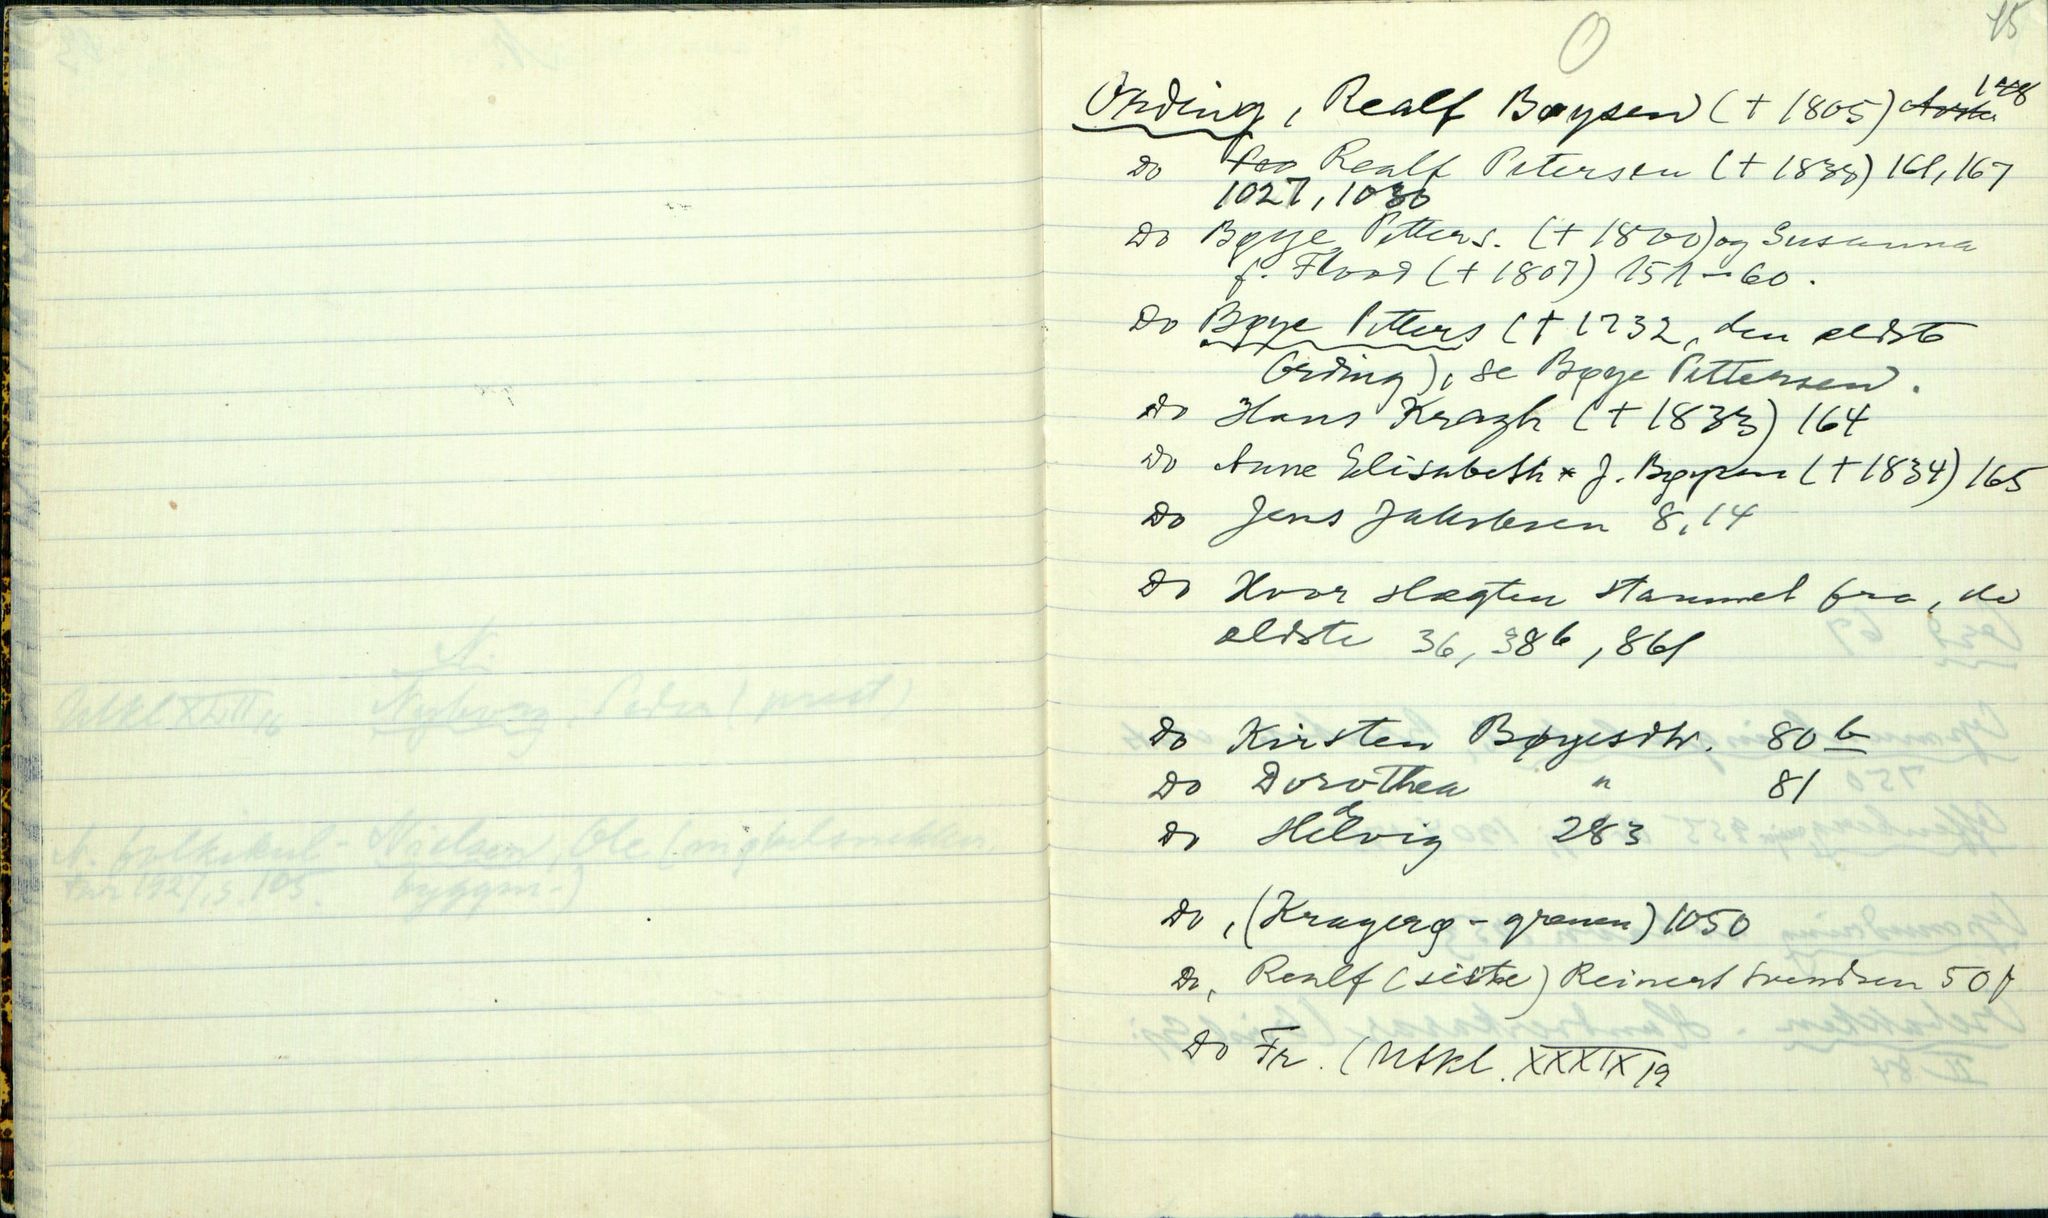 O
45
Ording, Realf Bøysen (+ 1805) 148
Do Realf Petersen (+ 1833) 161, 167
1027, 1030
Do Bøye Petters. (+ 1800) og Susanna
f. Flood (+ 1807) 151-60.
Do Bøye Petters (+ 1732, den eldste
Ording), se Bøye Pettersen.
Do Hans Kragh (+ 1833) 164
Do Anne Elisabeth * J. Bøysen (+ 1834) 165
Do Jens Jakobsen 8, 14
Do Hvor slægten stammet fra, de
eldste 36, 386, 861
Do Kirsten Bøyesdtr. 80 b
Do Dorothea " 81
Do Hedvig 283
Do, (Kragerø-grenen) 1050
Do, Realf (siste) Reinert Svendsen 501
Do Fr. (Utkl. XXXIX 19
N.
Nyborg, Peder (prest)
Utkl XLII
N. folkekul- Nielsen, Ole
tur 1927, s. 105. byggm-)